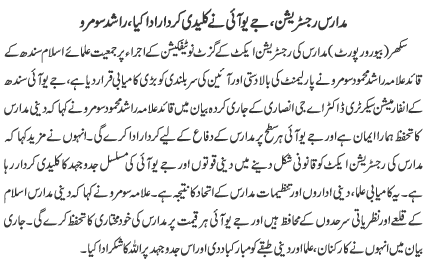 مدارس رجسٹریشن، جے یو آئی نے کلیدی کردار ادا کیا، راشد سومرو
سکھر (بیورو رپورٹ) مدارس کی رجسٹریشن ایکٹ کے گزٹ نوٹیفکیشن کے اجراء پر جمعیت علمائے اسلام سندھ کے
قائد علامہ راشد محمود سومرو نے پارلیمنٹ کی بالادستی اور آئین کی سربلندی کو بڑی کامیابی قرار دیا ہے، جے یو آئی سندھ
کے انفارمیشن سیکرٹری ڈاکٹر اے جی انصاری کے جاری کردہ بیان میں قائد علامہ راشد محمود سومرو نے کہا کہ دینی مدارس
کا تحفظ ہمارا ایمان ہے اور جے یو آئی ہر سطح پر مدارس کے دفاع کے لیے کردار ادا کرے گی۔ انہوں نے مزید کہا کہ
مدارس کی رجسٹریشن ایکٹ کو قانونی شکل دینے میں دینی قوتوں اور جے یو آئی کی مسلسل جدوجہد کا کلیدی کردار رہا
ہے۔ یہ کامیابی علماء، دینی اداروں اور تنظیمات مدارس کے اتحاد کا نتیجہ ہے۔ علامہ سومرو نے کہا کہ دینی مدارس اسلام
کے قلعے اور نظریاتی سرحدوں کے محافظ ہیں اور جے یو آئی ہر قیمت پر مدارس کی خودمختاری کا تحفظ کرے گی۔ جاری
بیان میں انہوں نے کارکنان، علماء اور دینی طبقے کو مبارکباد دی اور اس جدوجہد پر اللہ کا شکر ادا کیا۔